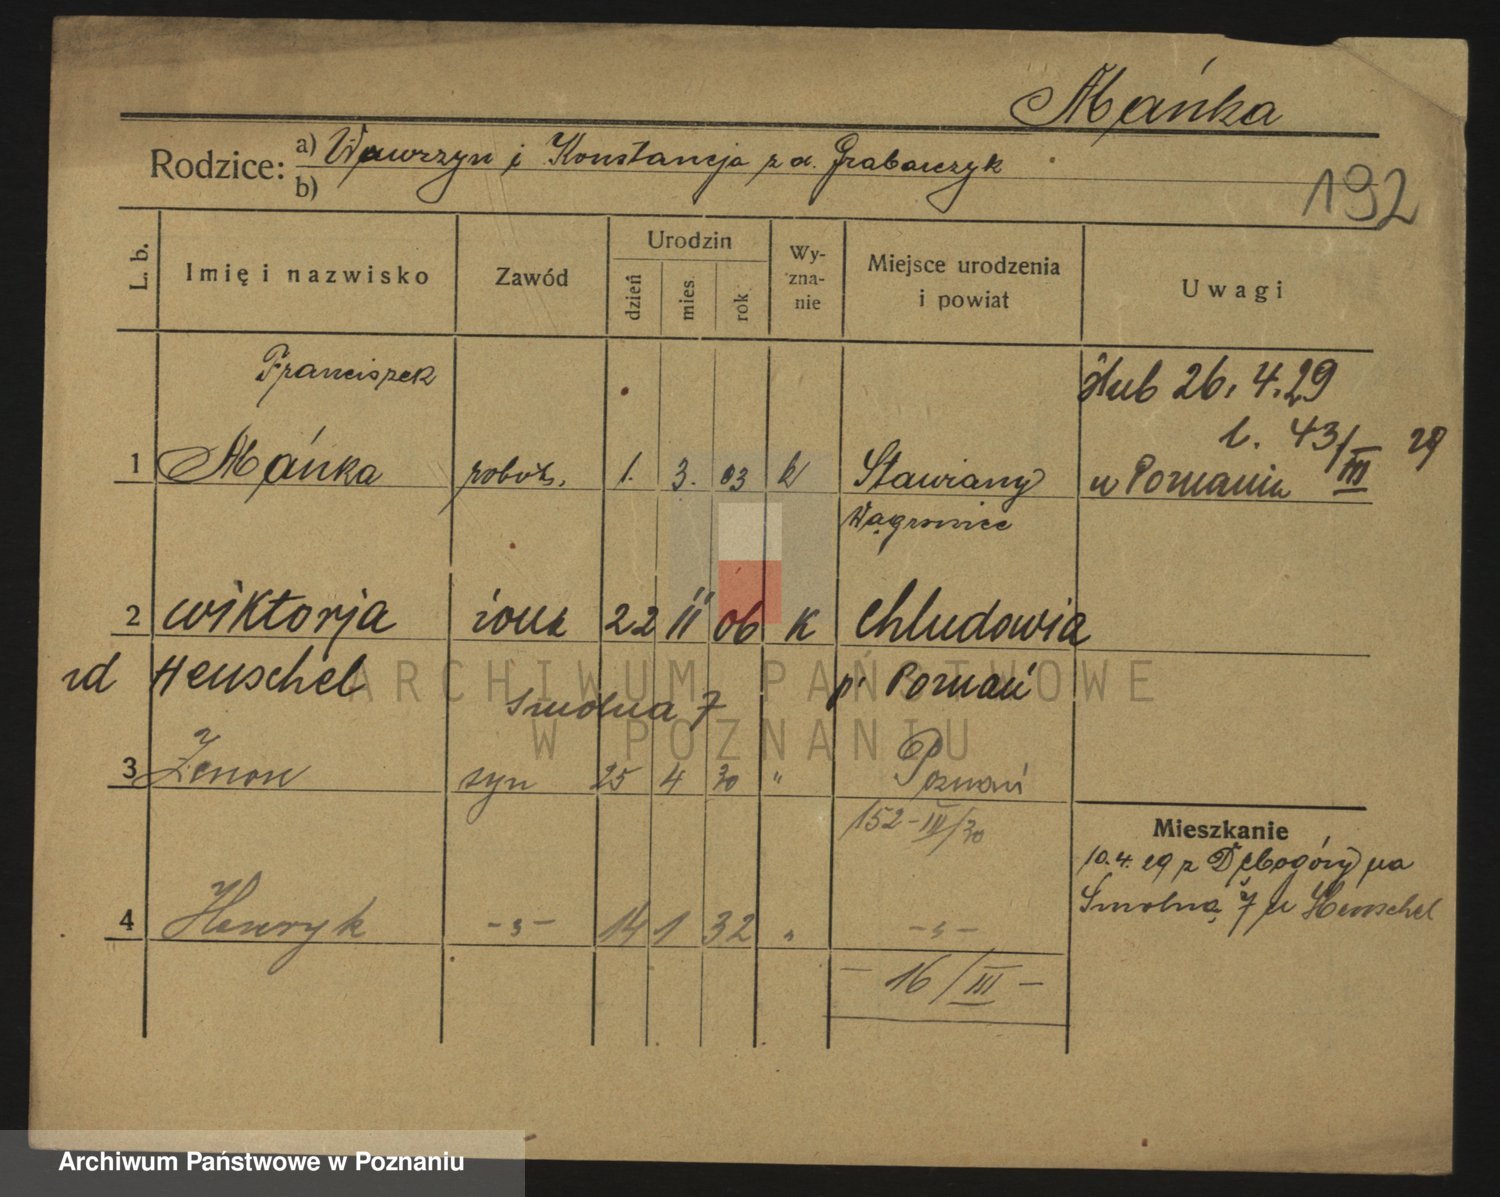 Mańka
Rodzice: a) Wawrzyn i Konstancja z d. Grabarczyk
b)
192
L. b. Imię i nazwisko Zawód Urodzin dzień mies. rok Wy-zna-nie Miejsce urodzenia i powiat Uwagi
Franciszek ślub 26. 4. 29
l. 43/III 29
1 Mańka robotn. 1. 3. 03 k Stawiany w Poznaniu
Wągrowiec
2 Wiktorja żona 22 II 06 k Chludowia
zd Henschel p. Poznań
Smolna 7
3 Zenon syn 25 4 30 " Poznań
152-IV/30
Mieszkanie
10. 4. 29 z Dębogóry na
Smolną 7 u Henschel
4 Henryk -"- 14 1 32 " -"-
- 16/III -
ARCHIWUM PAŃSTWOWE
W POZNANIU
Archiwum Państwowe w Poznaniu